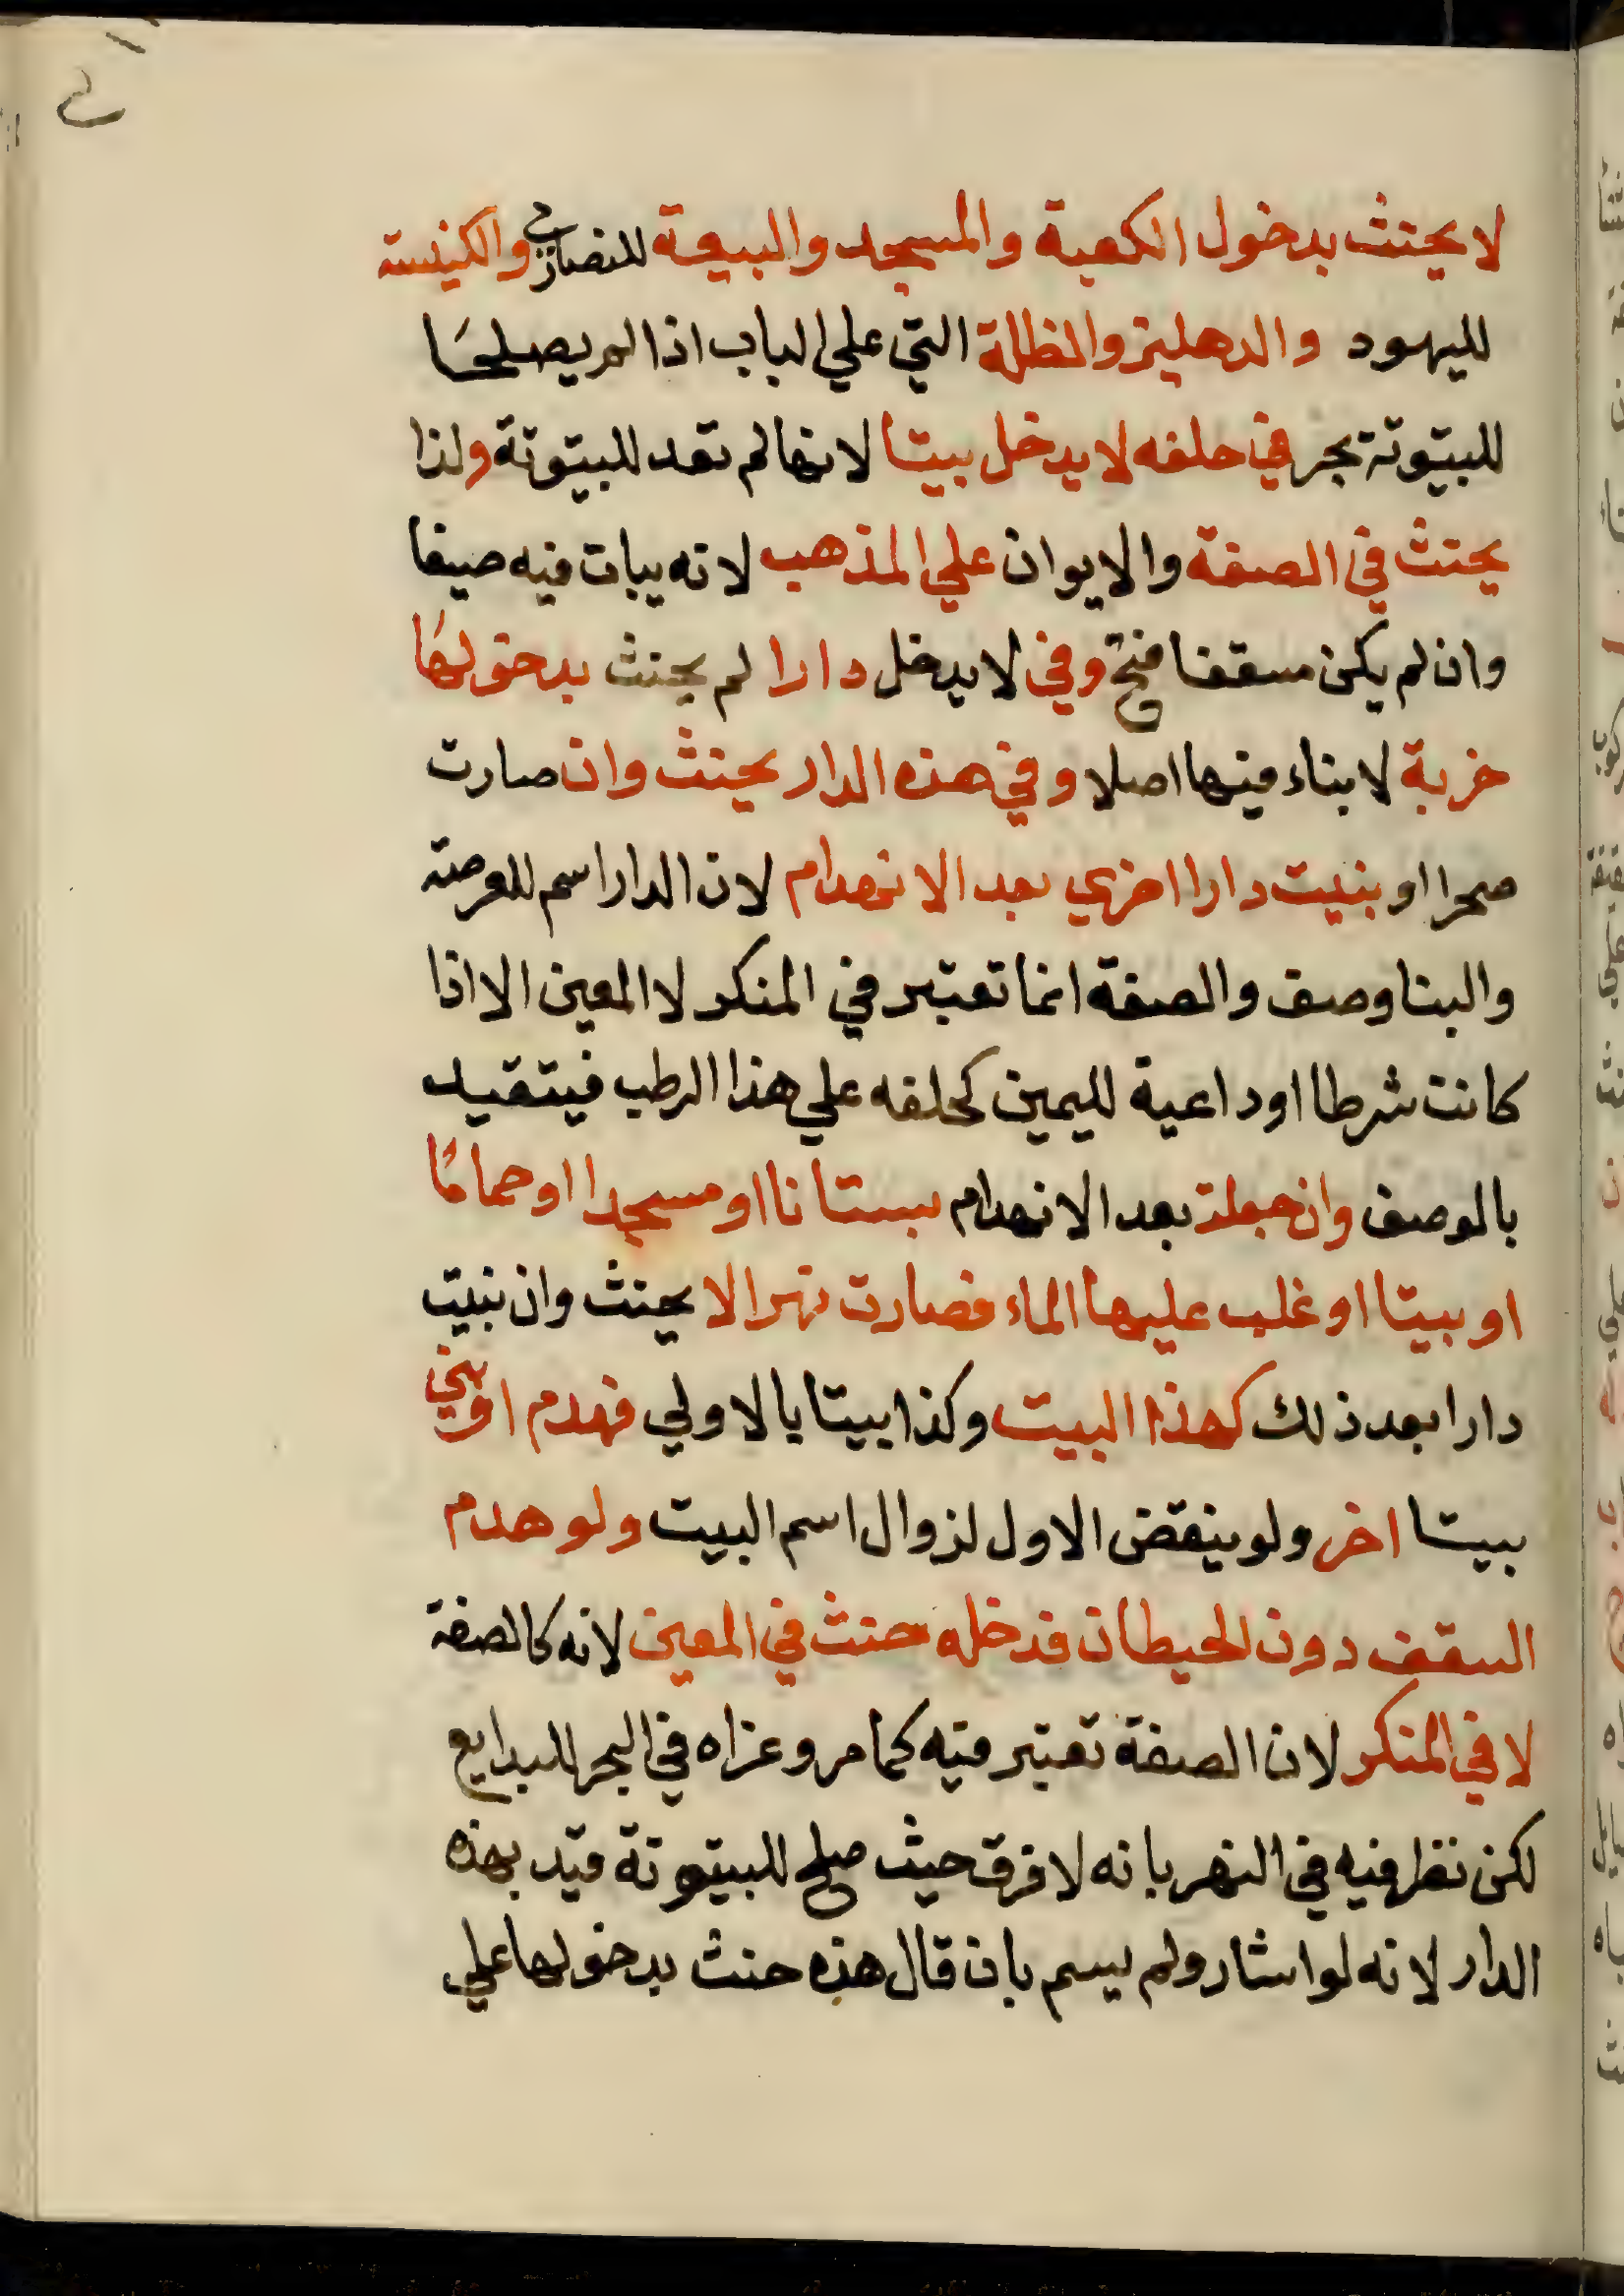 لا يحنث بدخول الكعبة والمسجد والبيعة للنصارى والكنيسة
لليهود والدهليز والظلة التي علي الباب اذا لم يصلحا
للبيتوتة بحر في حلفه لا يدخل بيتا لانها لم تعد للبيتوتة ولذا
يحنث في الصفة والايوان علي المذهب لانه يبات فيه صيفا
وان لم يكن مسقفا فتح وفي لا يدخل دارا لم يحنث بدخولها
خربة لا بناء فيها اصلا وفي هذه الدار يحنث وان صارت
صحرا او بنيت دارا اخري بعد الانهدام لان الدار اسم للعرصة
والبنا وصف والصفة انما تعتبر في المنكر لا المعين الا اذا
كانت شرطا او داعية لليمين كحلفه علي هذا الرطب فيتقيد
بالوصف وان جعلت بعد الانهدام بستانا او مسجدا او حمامًا
او بيتا او غلب عليها الماء فصارت نهرا لا يحنث وان بنيت
دارا بعد ذلك كهذا البيت وكذا بيتا بالاولي فهدم او بني
بيتا اخر ولو بنقض الاول لزوال اسم البيت ولو هدم
السقف دون الحيطان فدخله حنث في المعين لانه كالصفة
لا في المنكر لان الصفة تعتبر فيه كما مر وعزاه في البحر للبدايع
لكن نظر فيه في النهر بانه لا فرق حيث صلح للبيتوتة قيد بهذه
الدار لانه لو اشار ولم يسم بان قال هذه حنث بدخولها علي